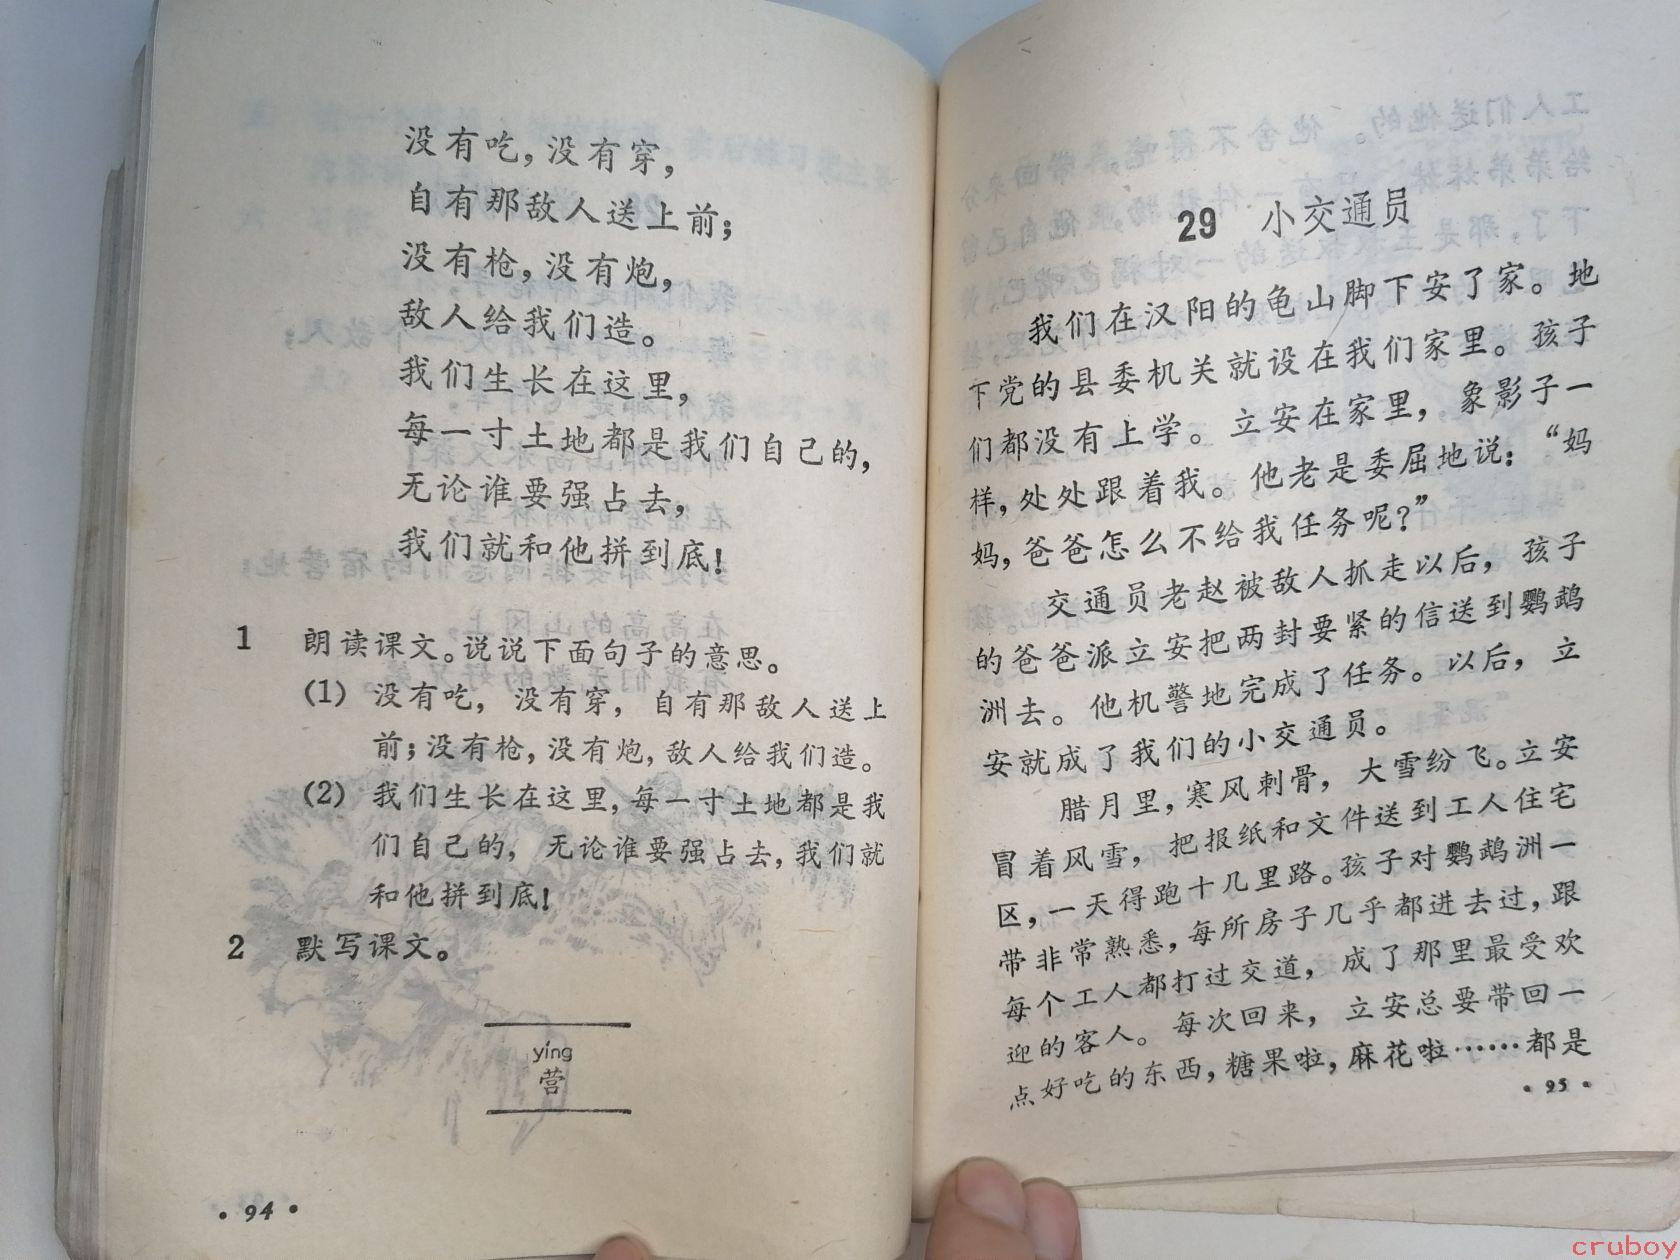 没有吃，没有穿，
自有那敌人送上前；
没有枪，没有炮，
敌人给我们造。
我们生长在这里，
每一寸土地都是我们自己的，
无论谁要强占去，
我们就和他拼到底！
1 朗读课文。说说下面句子的意思。
(1) 没有吃，没有穿，自有那敌人送上
前；没有枪，没有炮，敌人给我们造。
(2) 我们生长在这里，每一寸土地都是我
们自己的，无论谁要强占去，我们就
和他拼到底！
2 默写课文。
yíng
营
·94·
29 小交通员
我们在汉阳的龟山脚下安了家。地
下党的县委机关就设在我们家里。孩子
们都没有上学。立安在家里，象影子一
样，处处跟着我。他老是委屈地说：“妈
妈，爸爸怎么不给我任务呢？”
交通员老赵被敌人抓走以后，孩子
的爸爸派立安把两封要紧的信送到鹦鹉
洲去。他机警地完成了任务。以后，立
安就成了我们的小交通员。
腊月里，寒风刺骨，大雪纷飞。立安
冒着风雪，把报纸和文件送到工人住宅
区，一天得跑十几里路。孩子对鹦鹉洲一
带非常熟悉，每所房子几乎都进去过，跟
每个工人都打过交道，成了那里最受欢
迎的客人。每次回来，立安总要带回一
点好吃的东西，糖果啦，麻花啦……都是
·95·
cruboy